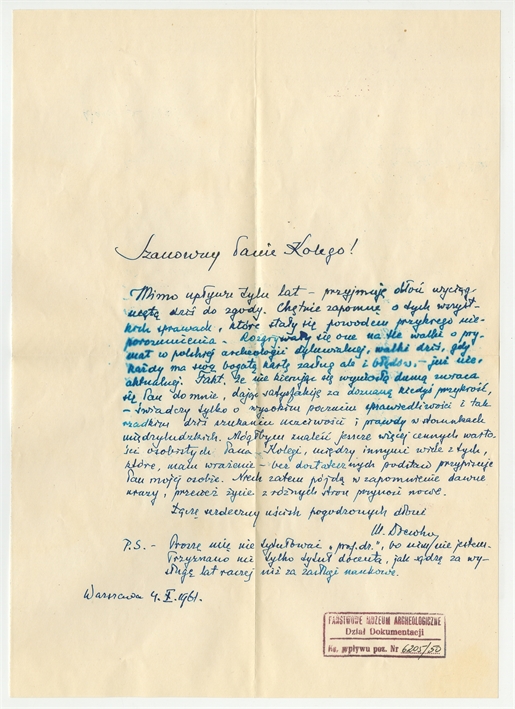 Szanowny Panie Kolego!
Mimo upływu tylu lat – przyjmuję dłoń wyciąg-
niętą dziś do zgody. Chętnie zapomnę o tych wszyst-
kich sprawach, które stały się powodem przykrego nie-
porozumienia. – Rozgrywały się one na tle walki o pry-
mat w polskiej archeologii dyluwialnej, walki dziś, gdy
każdy ma swą bogatą kartę zasług ale i błędów – już nie-
aktualnej. Fakt, że nie kierując się wyniosłą dumą zwraca
się Pan do mnie, dając satysfakcję za doznaną kiedyś przykrość,
– świadczy tylko o wysokim poczuciu sprawiedliwości i tak
rzadkim dziś szukaniu uczciwości i prawdy w stosunkach
międzyludzkich. Mógłbym znaleźć jeszcze więcej cennych warto-
ści osobistych Pana Kolegi, między innymi wiele z tych,
które, mam wrażenie – bez dostatecznych podstaw przypisuje
Pan mojej osobie. Niech zatem pójdą w zapomnienie dawne
urazy, przecież życie z różnych stron przynosi nowe.
Łączę serdeczny uścisk pogodzonych dłoni
P.S. – Proszę mię nie tytułować „prof. dr.”, bo nim nie jestem.
Przyznano mi tylko tytuł docenta, jak sądzę za wy-
sługę lat raczej niż za zasługi naukowe.
Warszawa 4. X. 1961.
PAŃSTWOWE MUZEUM ARCHEOLOGICZNE
Dział Dokumentacji
Ks. wpływu poz. Nr 6205/50